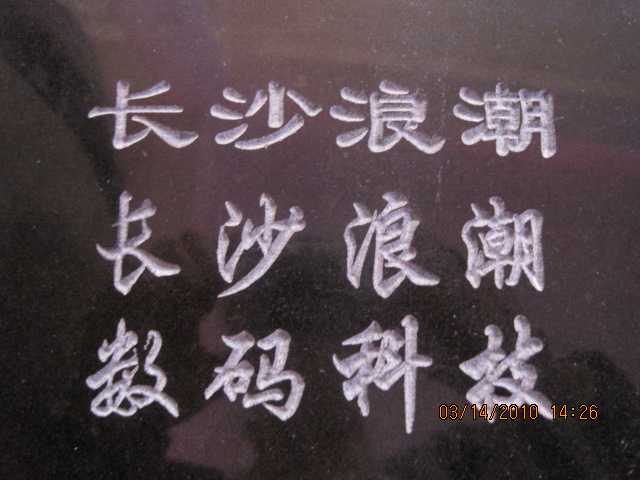 长沙浪潮
长沙浪潮
数码科技
03/14/2010 14:26